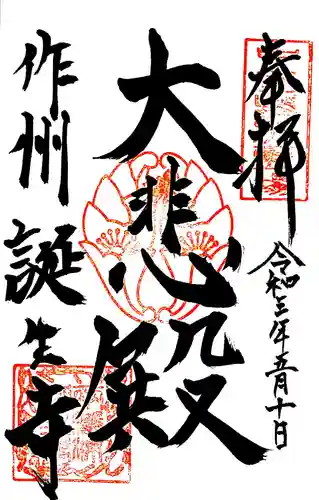 奉拝
令和三年五月十日
大悲心殿
作州
誕生寺